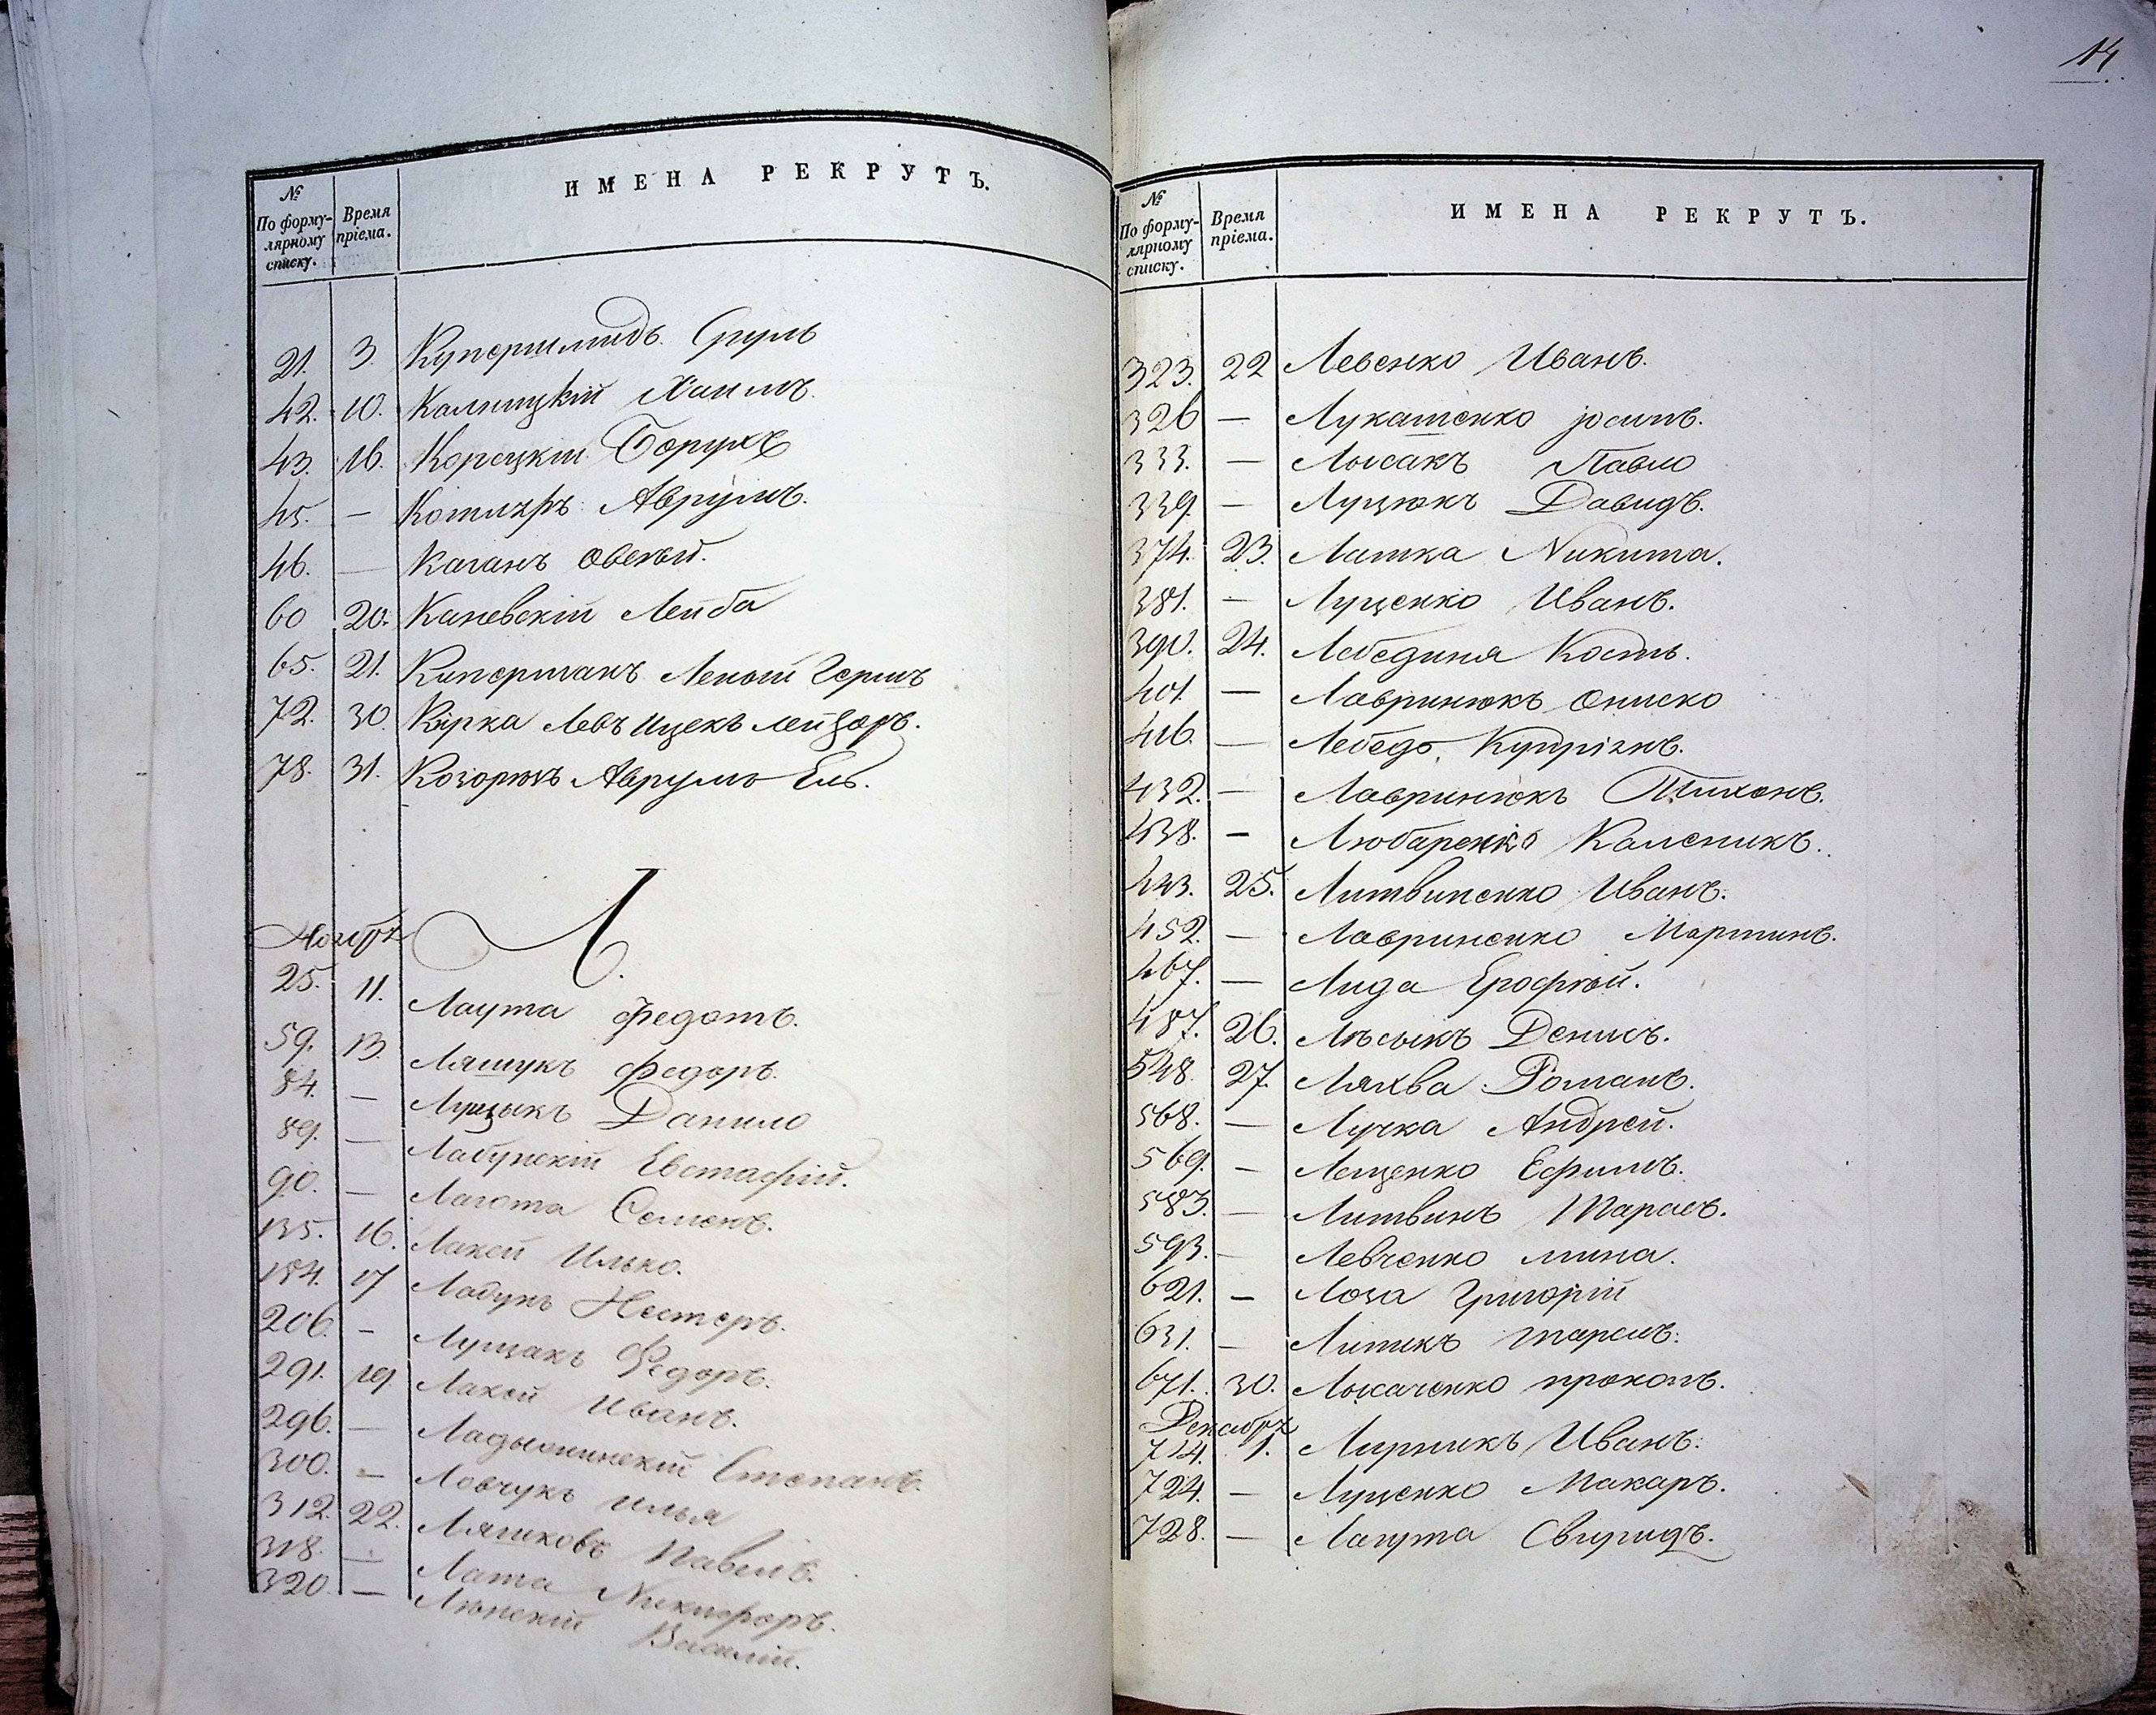 14.
ИМЕНА РЕКРУТЪ.
№ По форму-лярному списку. Время пріема.
21. 3. Купершмидъ Сруль
42. 10. Калницкій Хаимъ.
43. 16. Корецкій Борухъ
45. — Котляръ Аврумъ.
46. — Каганъ Овсѣй.
60 20. Каневскій Лейба
65. 21. Киперманъ Гершъ
72. 30. Кирка Левъ Ицекъ Лейзоръ.
78. 31. Аврумъ Ель.
Л.
Ноября
25. 11. Лаута Федотъ.
59. 13. Ляшукъ Федоръ.
84. — Луцыкъ Данило
89. — Лабунскій Евстафій.
90. — Лагота Семенъ.
135. 16. Лакей Илько.
184. 17 Лабунъ Нестеръ.
206. — Лущакъ Федоръ.
291. 19. Лакей Иванъ.
296. — Ладыжинскій Степанъ.
300. — Ловчукъ Илья
312. 22. Ляшковъ Павелъ.
318. — Лата Никифоръ.
320. — Василій.
ИМЕНА РЕКРУТЪ.
№ По форму-лярному списку. Время пріема.
323. 22 Левенко Иванъ.
326 — Лукашенко Іосипъ.
333. — Лысакъ Павло
339. — Луцюкъ Давидъ.
374. 23. Лашка Никита.
381. — Луценко Иванъ.
390. 24. Лебединя Кость.
401. — Лавринюкъ Ониско
416. — Лебедь Купріянъ.
432. — Лавринюкъ Тихонъ.
438. — Любаренко Каленикъ.
443. 25. Литвиненко Иванъ.
452. — Лавриненко Мартинъ.
467. — Лида Ерофѣй.
487. 26. Лѣсыкъ Денисъ.
548. 27. Ляхва Романъ.
568. — Лучка Андрей.
569. — Лещенко Ефимъ.
583. — Литвинъ Тарасъ.
593. — Левченко Мина.
621. — Лоза Григорій
631. — Липикъ Тарасъ.
671. 30. Лысаченко Прокопъ.
Декабря
714. 1. Лирникъ Иванъ.
724. — Луценко Макаръ.
728. — Лагута Свиридъ.